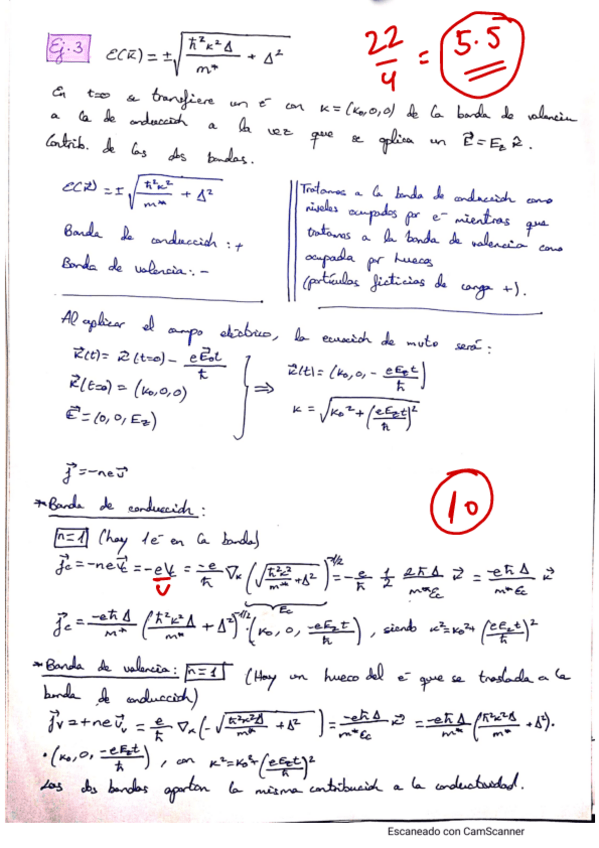 Ej.3 ε(k⃗) = ±√(ħ²k²Δ/m* + Δ²)
22/4 = 5.5
En t=0 se transfiere un e⁻ con k = (k₀,0,0) de la banda de valencia
a la de conducción a la vez que se aplica un E⃗ = E_z k̂.
Contrib. de las dos bandas.
ε(k⃗) = ±√(ħ²k²/m* + Δ²)
Banda de conducción : +
Banda de valencia : -
Tratamos a la banda de conducción como
niveles ocupados por e⁻ mientras que
tratamos a la banda de valencia como
ocupada por huecos
(partículas ficticias de carga +).
Al aplicar el campo eléctrico, la ecuación de mvto será:
k⃗(t) = k⃗(t=0) - eE⃗₀t/ħ
k⃗(t=0) = (k₀,0,0)
E⃗ = (0,0,E_z)
⇒ k⃗(t) = (k₀, 0, - eE_zt/ħ)
k = √(k₀² + (eE_zt/ħ)²)
j⃗ = -nev⃗
10
* Banda de conducción:
n=1 (hay 1e⁻ en la banda)
j⃗c = -nev⃗c = -eVc = -e/ħ ∇k (√(ħ²k²/m* + Δ²))^-1/2 = -e/ħ 1/2 2ħΔ/m*εc k⃗ = -eħΔ/m*εc k⃗
εc
v
j⃗c = -eħΔ/m* (ħ²k²Δ/m* + Δ²)^-1/2 · (k₀, 0, -eE_zt/ħ), siendo k² = k₀² + (eE_zt/ħ)²
* Banda de valencia: n=1 (Hay un hueco del e⁻ que se traslada a la
banda de conducción)
j⃗v = +nev⃗v = e/ħ ∇k (-√(ħ²k²Δ/m* + Δ²)) = -eħΔ/m*εc k⃗ = -eħΔ/m* (ħ²k²Δ/m* + Δ²)·
· (k₀, 0, -eE_zt/ħ), con k² = k₀² + (eE_zt/ħ)²
Las dos bandas aportan la misma contribución a la conductividad.
Escaneado con CamScanner